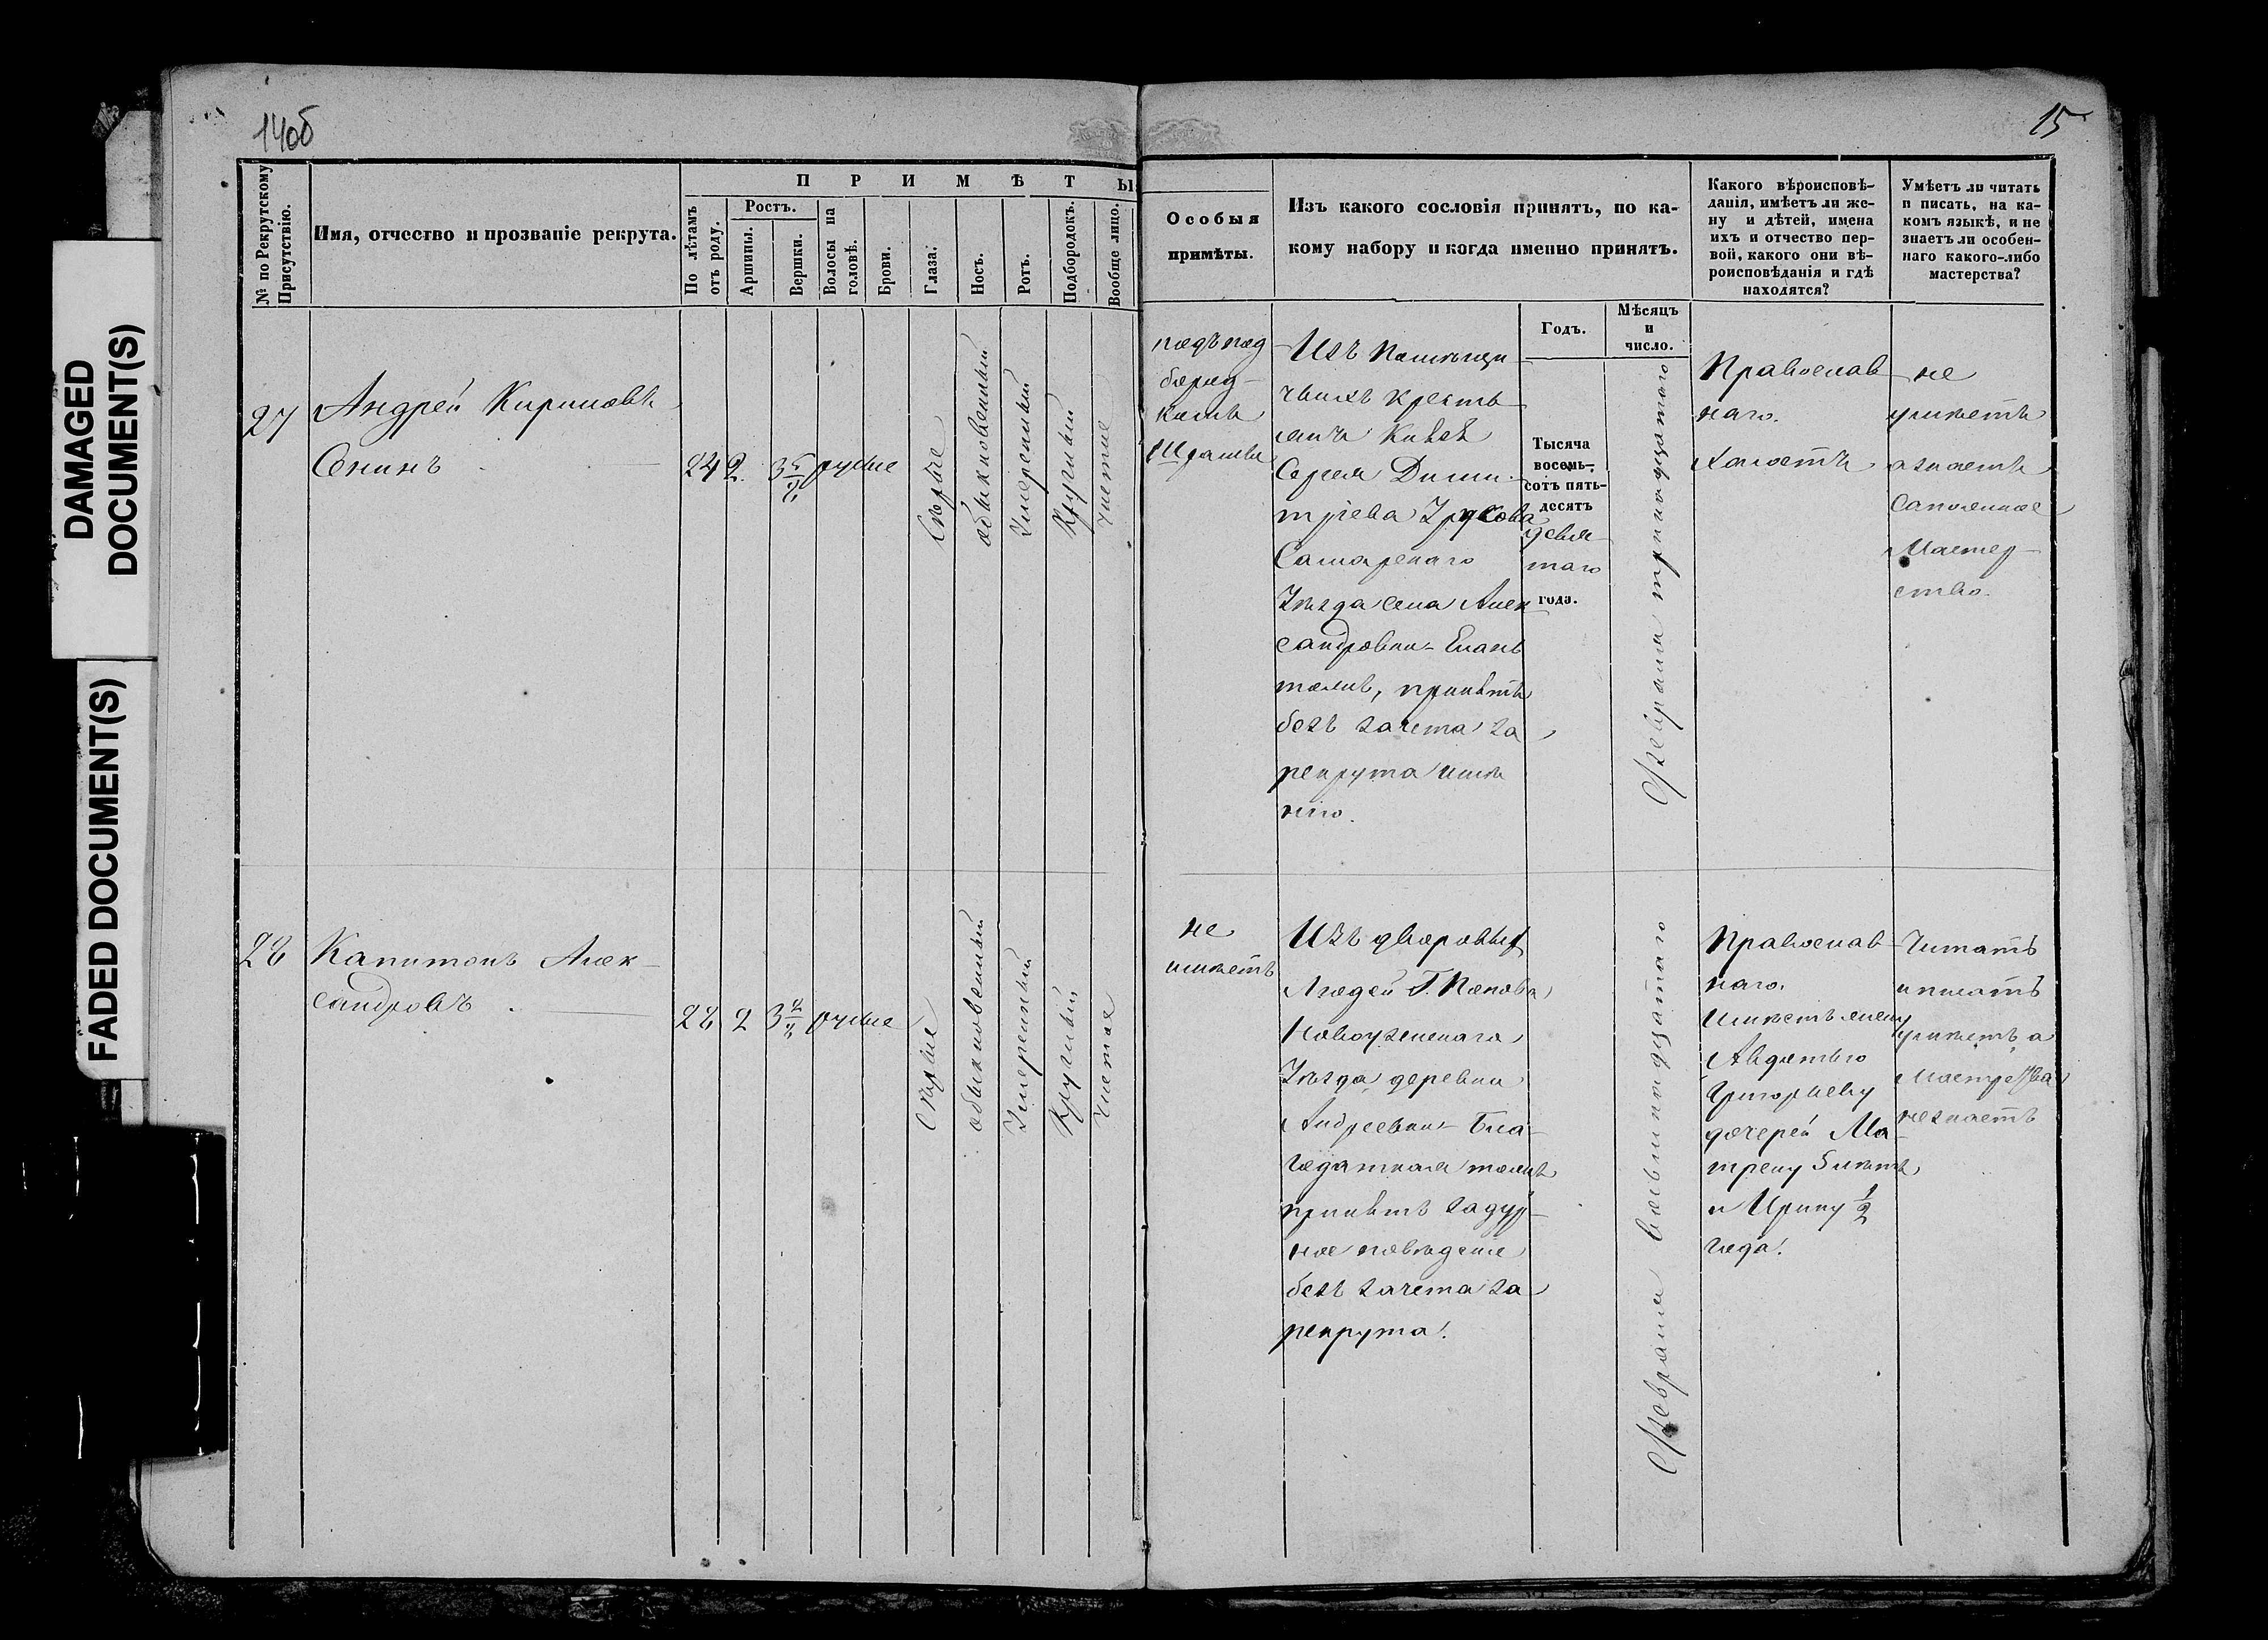 DAMAGED
DOCUMENT(S)
FADED DOCUMENT(S)
14об
15
№ по Рекрутскому
Присутствію.
Имя, отчество и прозваніе рекрута.
ПРИМѢТЫ
По лѣтамъ
отъ роду.
Ростъ.
Аршины.
Вершки.
Волосы на
головѣ.
Брови.
Глаза.
Носъ.
Ротъ.
Подбородокъ.
Вообще лицо.
Особыя
примѣты.
Изъ какого сословія принятъ, по ка-
кому набору и когда именно принятъ.
Годъ.
Мѣсяцъ
и
число.
Какого вѣроисповѣ-
данія, имѣетъ ли же-
ну и дѣтей, имена
ихъ и отчество пер-
вой, какого они вѣ-
роисповѣданія и гдѣ
находятся?
Умѣетъ ли читать
и писать, на ка-
комъ языкѣ, и не
знаетъ ли особен-
наго какого-либо
мастерства?
27
Андрей Кириловъ
Сенинъ
24
2
3
русые
Сѣрые
обыкновенный
Умеренный
Круглый
чистое
подъ под
бород-
комъ
Шрамъ
Изъ Помѣщи
чьихъ кресть
янъ Князя
Сергея Дими-
тріева Урусова
Самарскаго
Уѣзда села Алек
сандровки
томъ, принятъ
безъ зачета за
рекрута имѣ
нію.
Тысяча
восемь-
сотъ пять-
десятъ
девя
таго
года.
Февраля тринадцатаго
Православ
наго.
Холостъ
не
умѣетъ
а знаетъ
Сапожное
Мастер-
ство.
28
Капитонъ Алек-
сандровъ
28
2
3
русые
Сѣрые
обыкновенный
Умеренный
Круглый
чистое
не
имѣетъ
Изъ дворовых
Людей Г. Попова
Новоузенскаго
Уѣзда деревни
Андреевки Бла-
годатная тожъ
принятъ за дур-
ное поведение
безъ зачета за
рекрута.
Февраля восьмнадцатаго
Православ
наго.
Имѣетъ жену
Авдотью
Григорьеву
дочерей Ма-
трену 5 лѣтъ
и Ирину 1/2
года.
Читать
и писать
умѣетъ а
Мастерства
незнаетъ